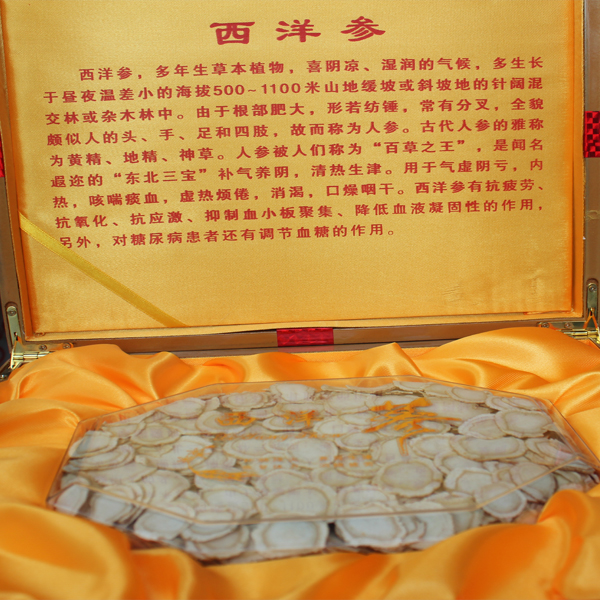 西洋参
西洋参，多年生草本植物，喜阴凉、湿润的气候，多生长
于昼夜温差小的海拔500~1100米山地缓坡或斜坡地的针阔混
交林或杂木林中。由于根部肥大，形若纺锤，常有分叉，全貌
颇似人的头、手、足和四肢，故而称为人参。古代人参的雅称
为黄精、地精、神草。人参被人们称为“百草之王”，是闻名
遐迩的“东北三宝”补气养阴，清热生津。用于气虚阴亏，内
热，咳喘痰血，虚热烦倦，消渴，口燥咽干。西洋参有抗疲劳、
抗氧化、抗应激、抑制血小板聚集、降低血液凝固性的作用，
另外，对糖尿病患者还有调节血糖的作用。